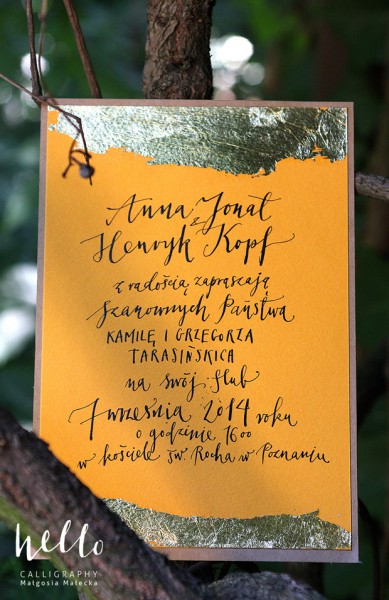 Anna Jonat
z
Henryk Kopf
z radością zapraszają
Szanownych Państwa
KAMILĘ I GRZEGORZA
TARASIŃSKICH
na swój ślub
7 września 2014 roku
o godzinie 16 00
w kościele św. Rocha w Poznaniu
hello
CALLIGRAPHY
Małgosia Małecka